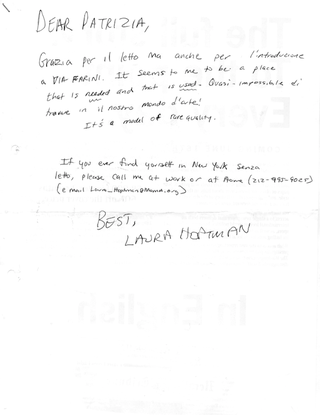 DEAR PATRIZIA,
Grazia per il letto ma anche per l'introduzione
a VIA FARINI. It seems to me to be a place
that is needed and that is used. Quasi-impossibile di
trovare in il nostro mondo d'arte!
It's a model of rare quality.
If you ever find yourself in New York senza
letto, please call me at work or at home
(e mail Laura_Hoptman@Moma.org)
BEST,
LAURA HOPTMAN
In English